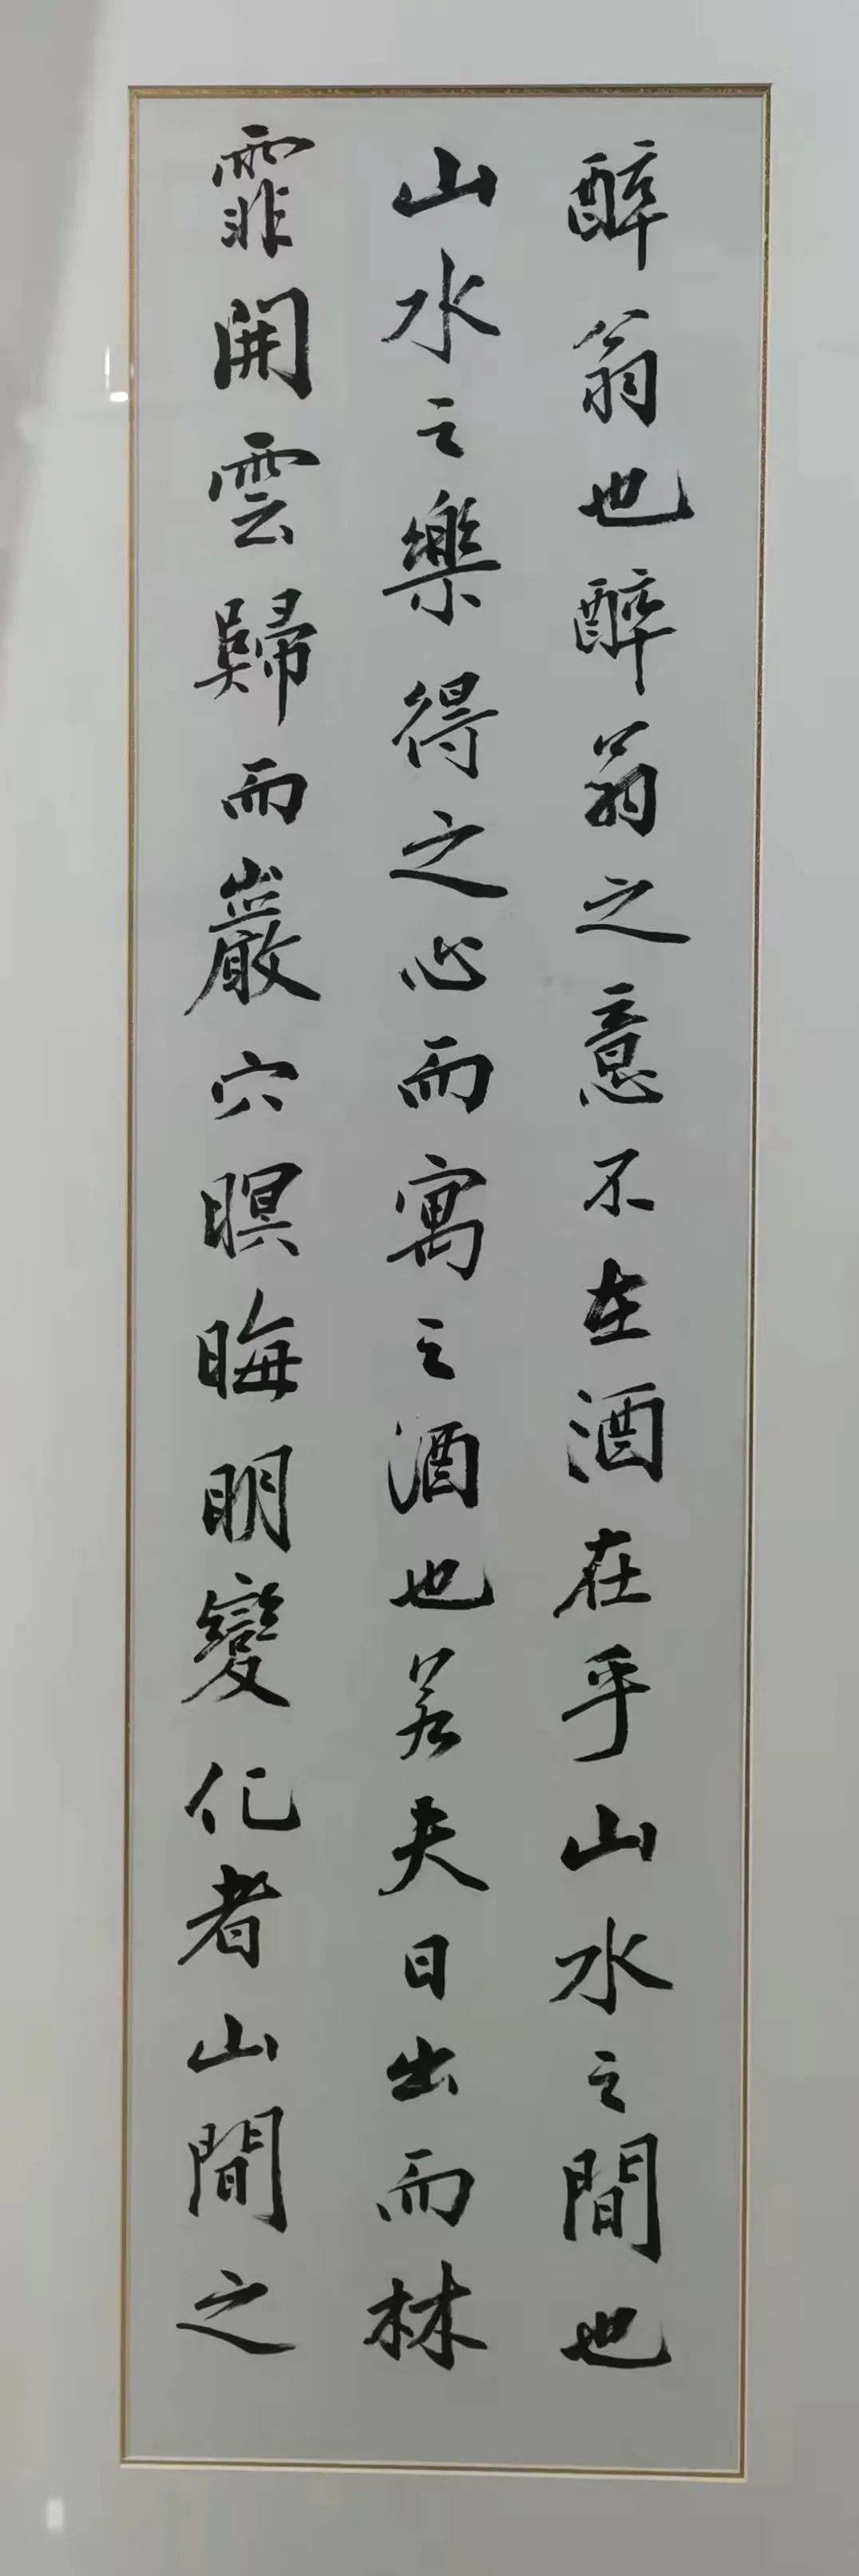 醉翁也醉翁之意不在酒在乎山水之間也
山水之樂得之心而寓之酒也若夫日出而林
霏開雲歸而巖穴暝晦明變化者山間之